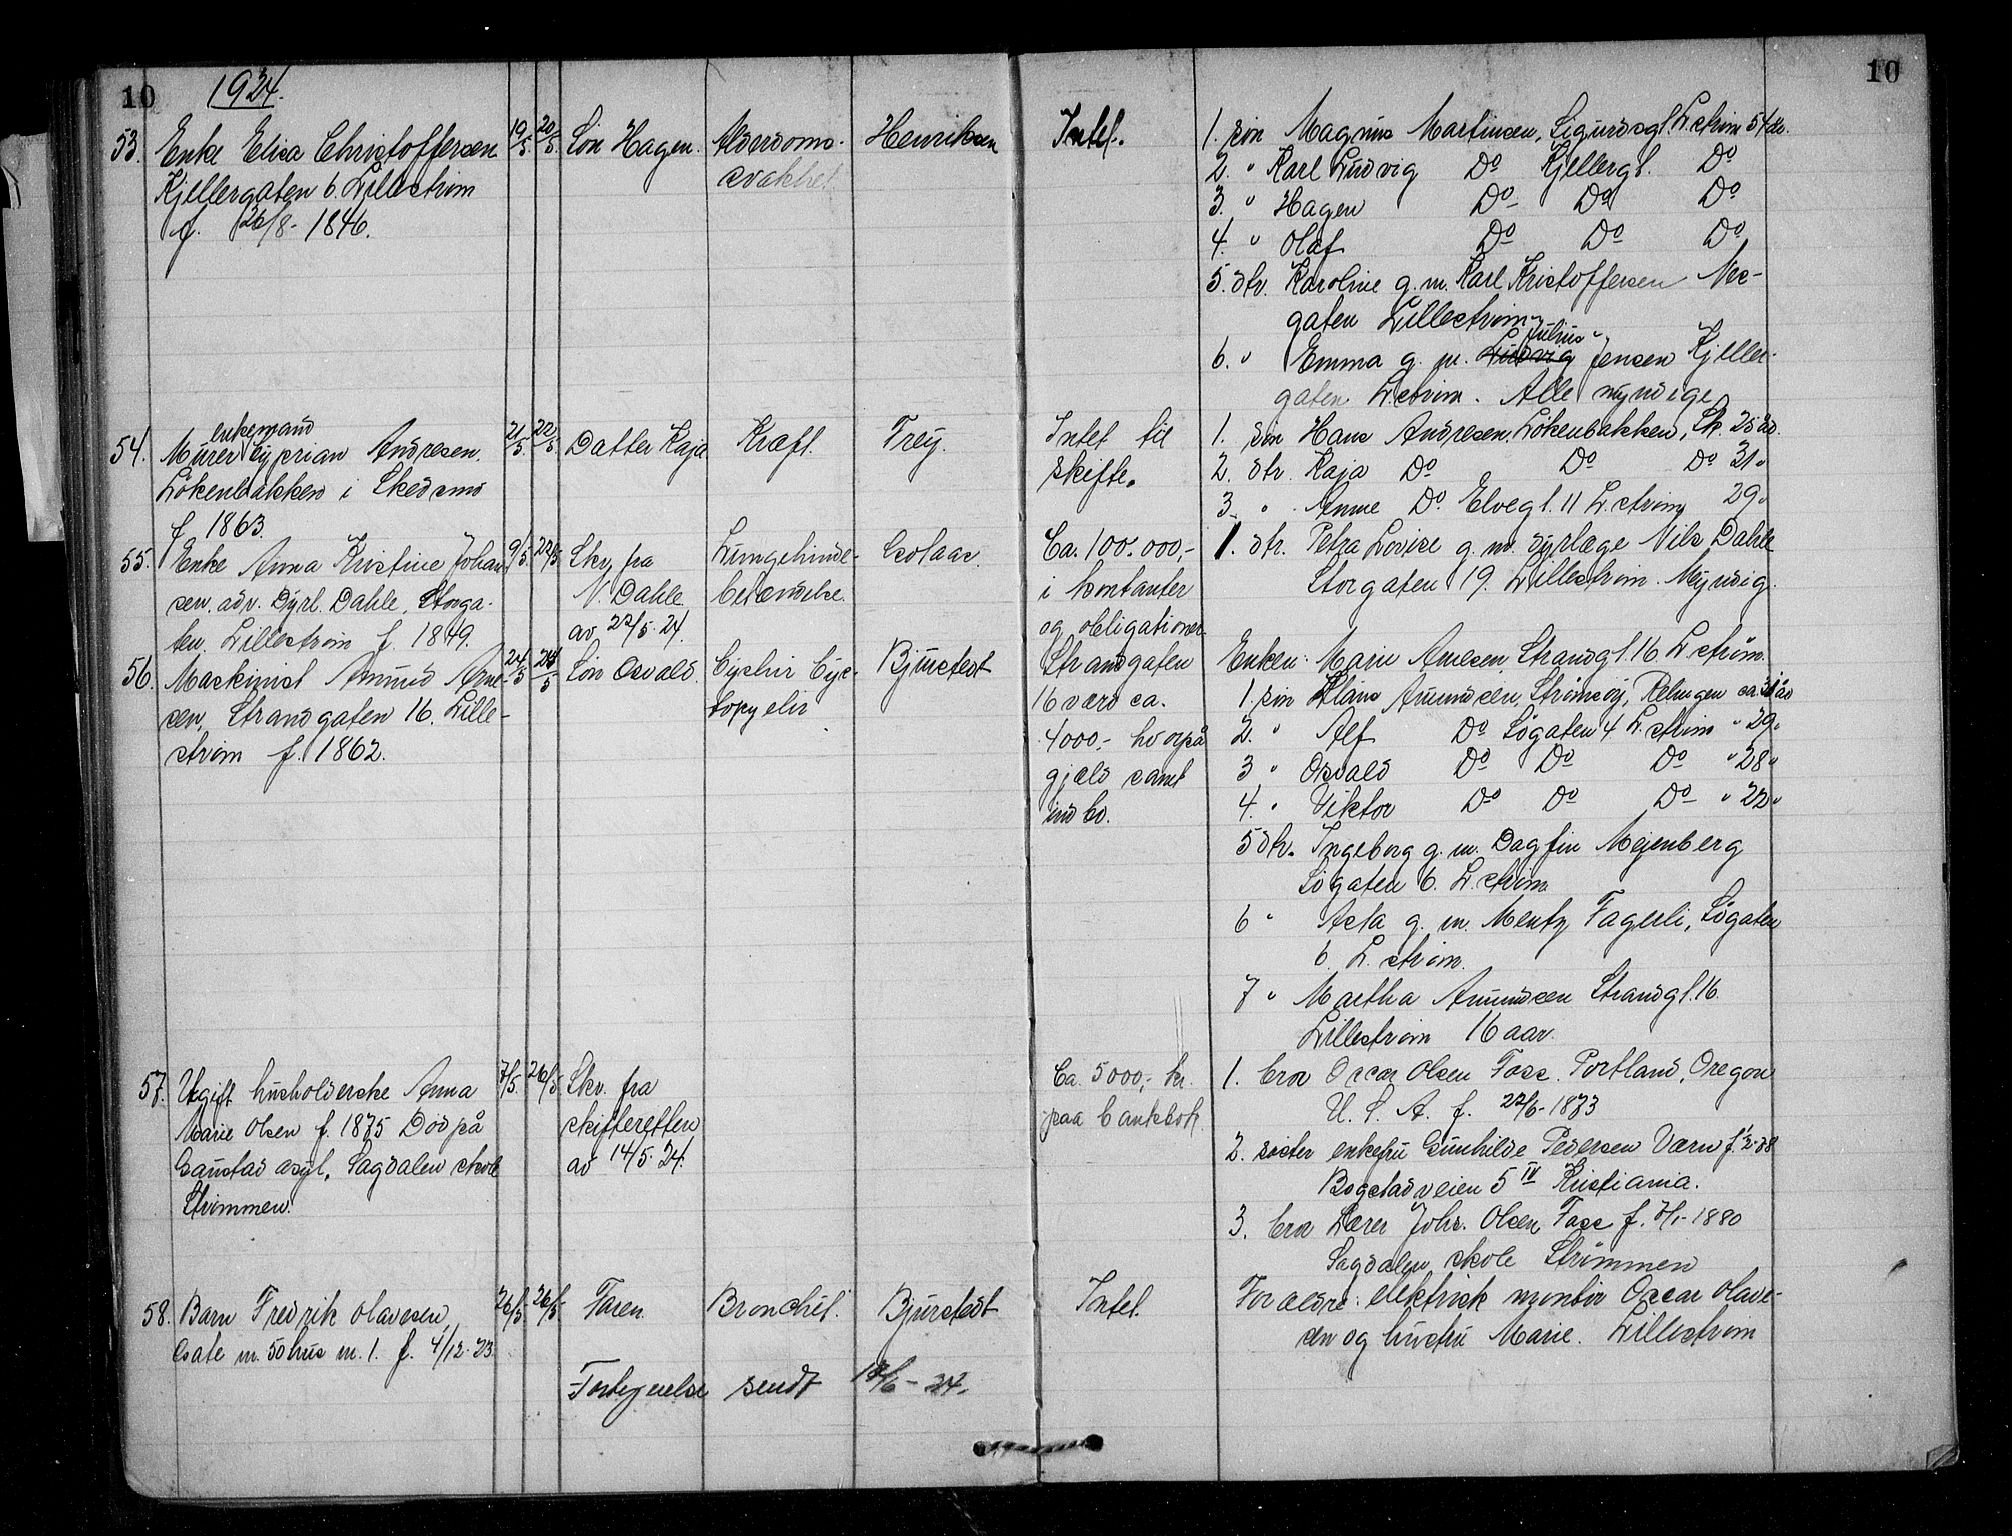 10
1924.
10
53. Enke Elisa Christoffersen 19/5 20/5 Søn Hagen. Alderdoms- Henriksen Intet.
Kjellergaten 6 Lillestrøm svakhet
f. 26/8-1846.
1. søn Magnus Martinsen, Sigurdsgt. L.strøm 54 år.
2. " Karl Ludvig Do Kjellergt. Do
3. " Hagen Do Do Do
4. " Olaf Do Do Do
5. dtr. Karoline g.m. Karl Kristoffersen Nes-
gaten Lillestrøm
Julius
6. " Emma g.m. Ludvig Jensen Kjeller-
gaten L.strøm. Alle myndige
enkemand
54. Murer Cyprian Andresen. 21/5 22/5 Datter Kaja Kræft. Frey. Intet til
Løkenbakken i Skedsmo skifte.
f. 1863.
1. søn Hans Andresen, Løkenbakken, Sk. 25 år.
2. dtr. Kaja Do Do Do 31 "
3. " Anne Do Elvegt. 11 L.strøm 29 "
55. Enke Anna Kristine Johan- 9/5 22/5 Skr. fra Lungehinde- Ca. 100.000,-
sen. adr. Dyrl. Dahle, Storga- N. Dahle betændelse. i kontanter
ten, Lillestrøm f. 1849. av 22/5-24. og obligationer
1. dtr. Petra Lovise g.m. dyrlæge Nils Dahle
Storgaten 19. Lillestrøm. Myndig.
56. Maskinist Amund Arne- 24/5 24/5 Søn Osvald. Bjurstedt Strandgaten
sen, Strandgaten 16. Lille- 16 værd ca.
strøm f. 1862. 4000,- hvorpå
gjæld samt
indbo.
Enken: Marie Arnesen Strandgt. 16 L.strøm.
1. søn Hans Amundsen, Strømsøy, Relingen ca 31 år
2. " Alf Do Søgaten 4 L.strøm " 29 "
3 " Osvald Do Do Do " 28 "
4. " Viktor Do Do Do " 22 "
5 dtr. Ingeborg g.m. Dagfin Mejenberg
Søgaten 6. L.strøm
6 " Asta g.m. Mentz Fagerli, Søgaten
6. L.strøm.
7 " Martha Amundsen Strandgt. 16.
Lillestrøm 16 aar.
57. Ugift husholderske Anna 7/5 26/5 Skr. fra Ca. 5000,- kr.
Marie Olsen f. 1875 Død på skifteretten paa bankbok
Gaustad asyl, Sagdalen skole av 14/5-24.
Strømmen.
1. bror Oscar Olsen Foss. Portland, Oregon
U.S.A. f. 22/6-1873
2. søster enkefru Gunhilde Pedersen Værn
Bogstadveien 5 IV Kristiania.
3. bror Lærer Johs. Olsen Foss f. 7/1-1880
Sagdalen skole Strømmen
58. Barn Fredrik Olavesen, 26/5 26/5 Faren. Bronchit. Bjurstedt Intet
Gate nr. 50 hus nr. 1. f. 4/12-23.
Forældre: elektrisk montør Oscar Olave-
sen og hustru Marie. Lillestrøm
Fortegnelse sendt 12/6-24.